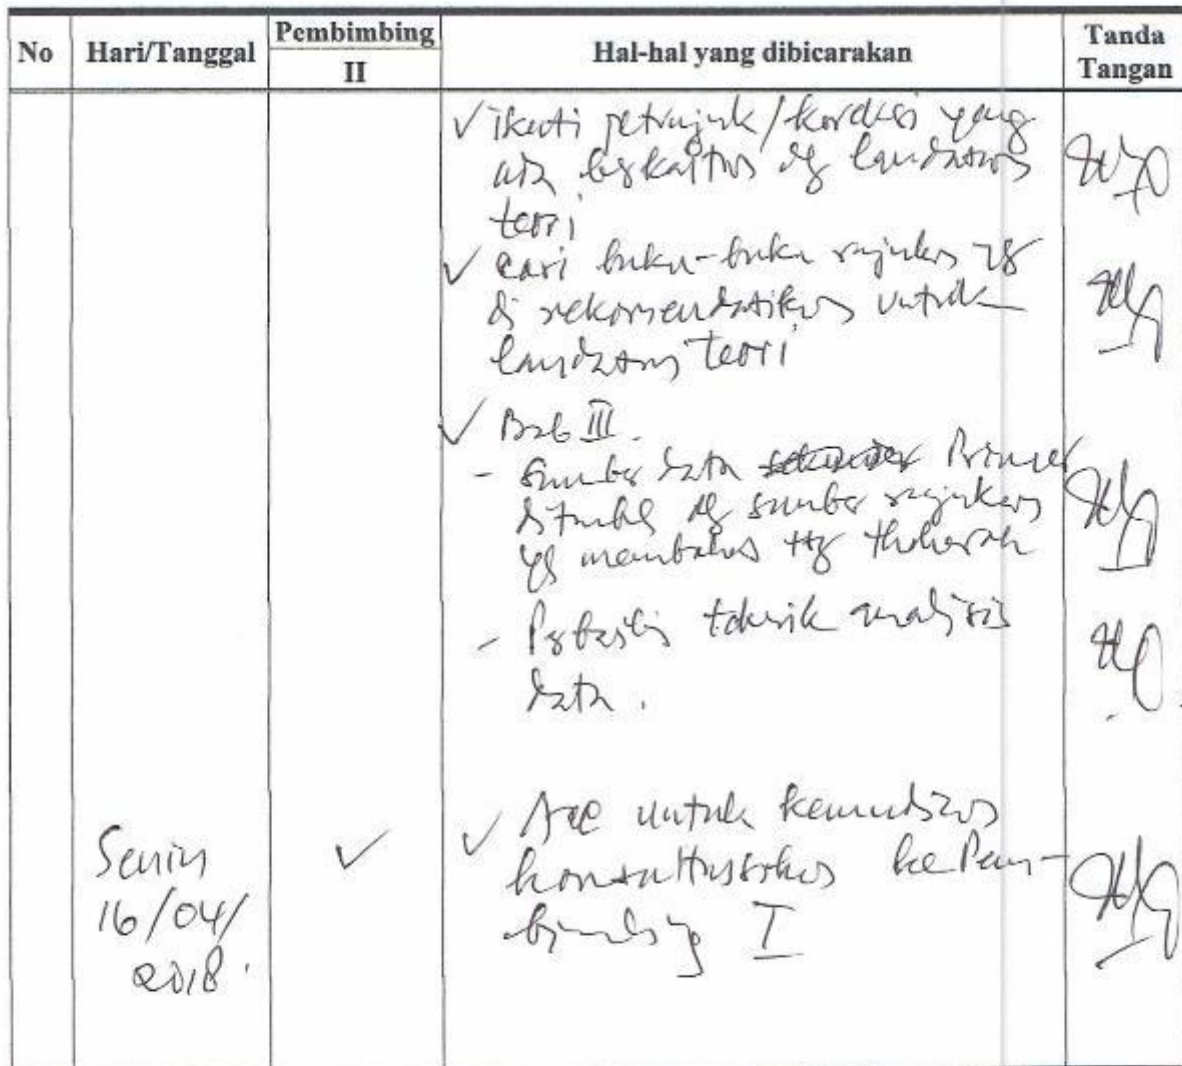 No Hari/Tanggal Pembimbing II Hal-hal yang dibicarakan Tanda Tangan
✓ ikuti petunjuk/koreksi yang
ada dg landasan
teori
✓ cari buku-buku rujukan yg
di rekomendasikan untuk
landasan teori
✓ Bab III.
- Sumber data Primer
dg sumber rujukan
yg membahas ttg thaharah
- teknik analisis
data.
Senin
16/04/
2018.
✓
✓ Acc untuk kemudian
konsultasikan ke Pem-
bimbing I